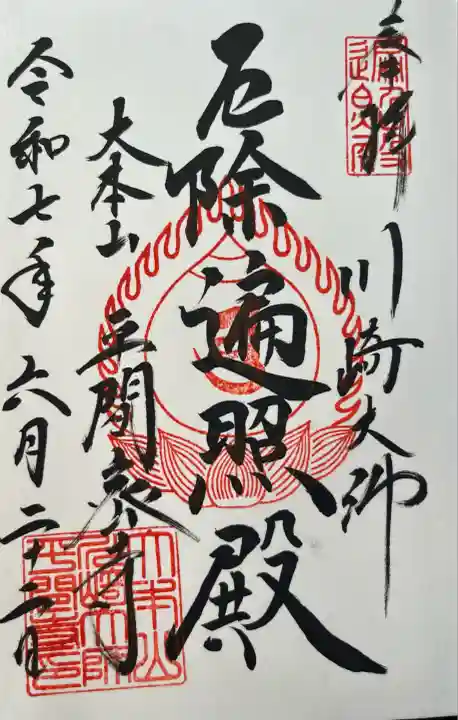 奉拝 川崎大師
厄除遍照殿
大本山 平間寺
令和七年六月二十二日
大本山
川崎大師
平間寺印